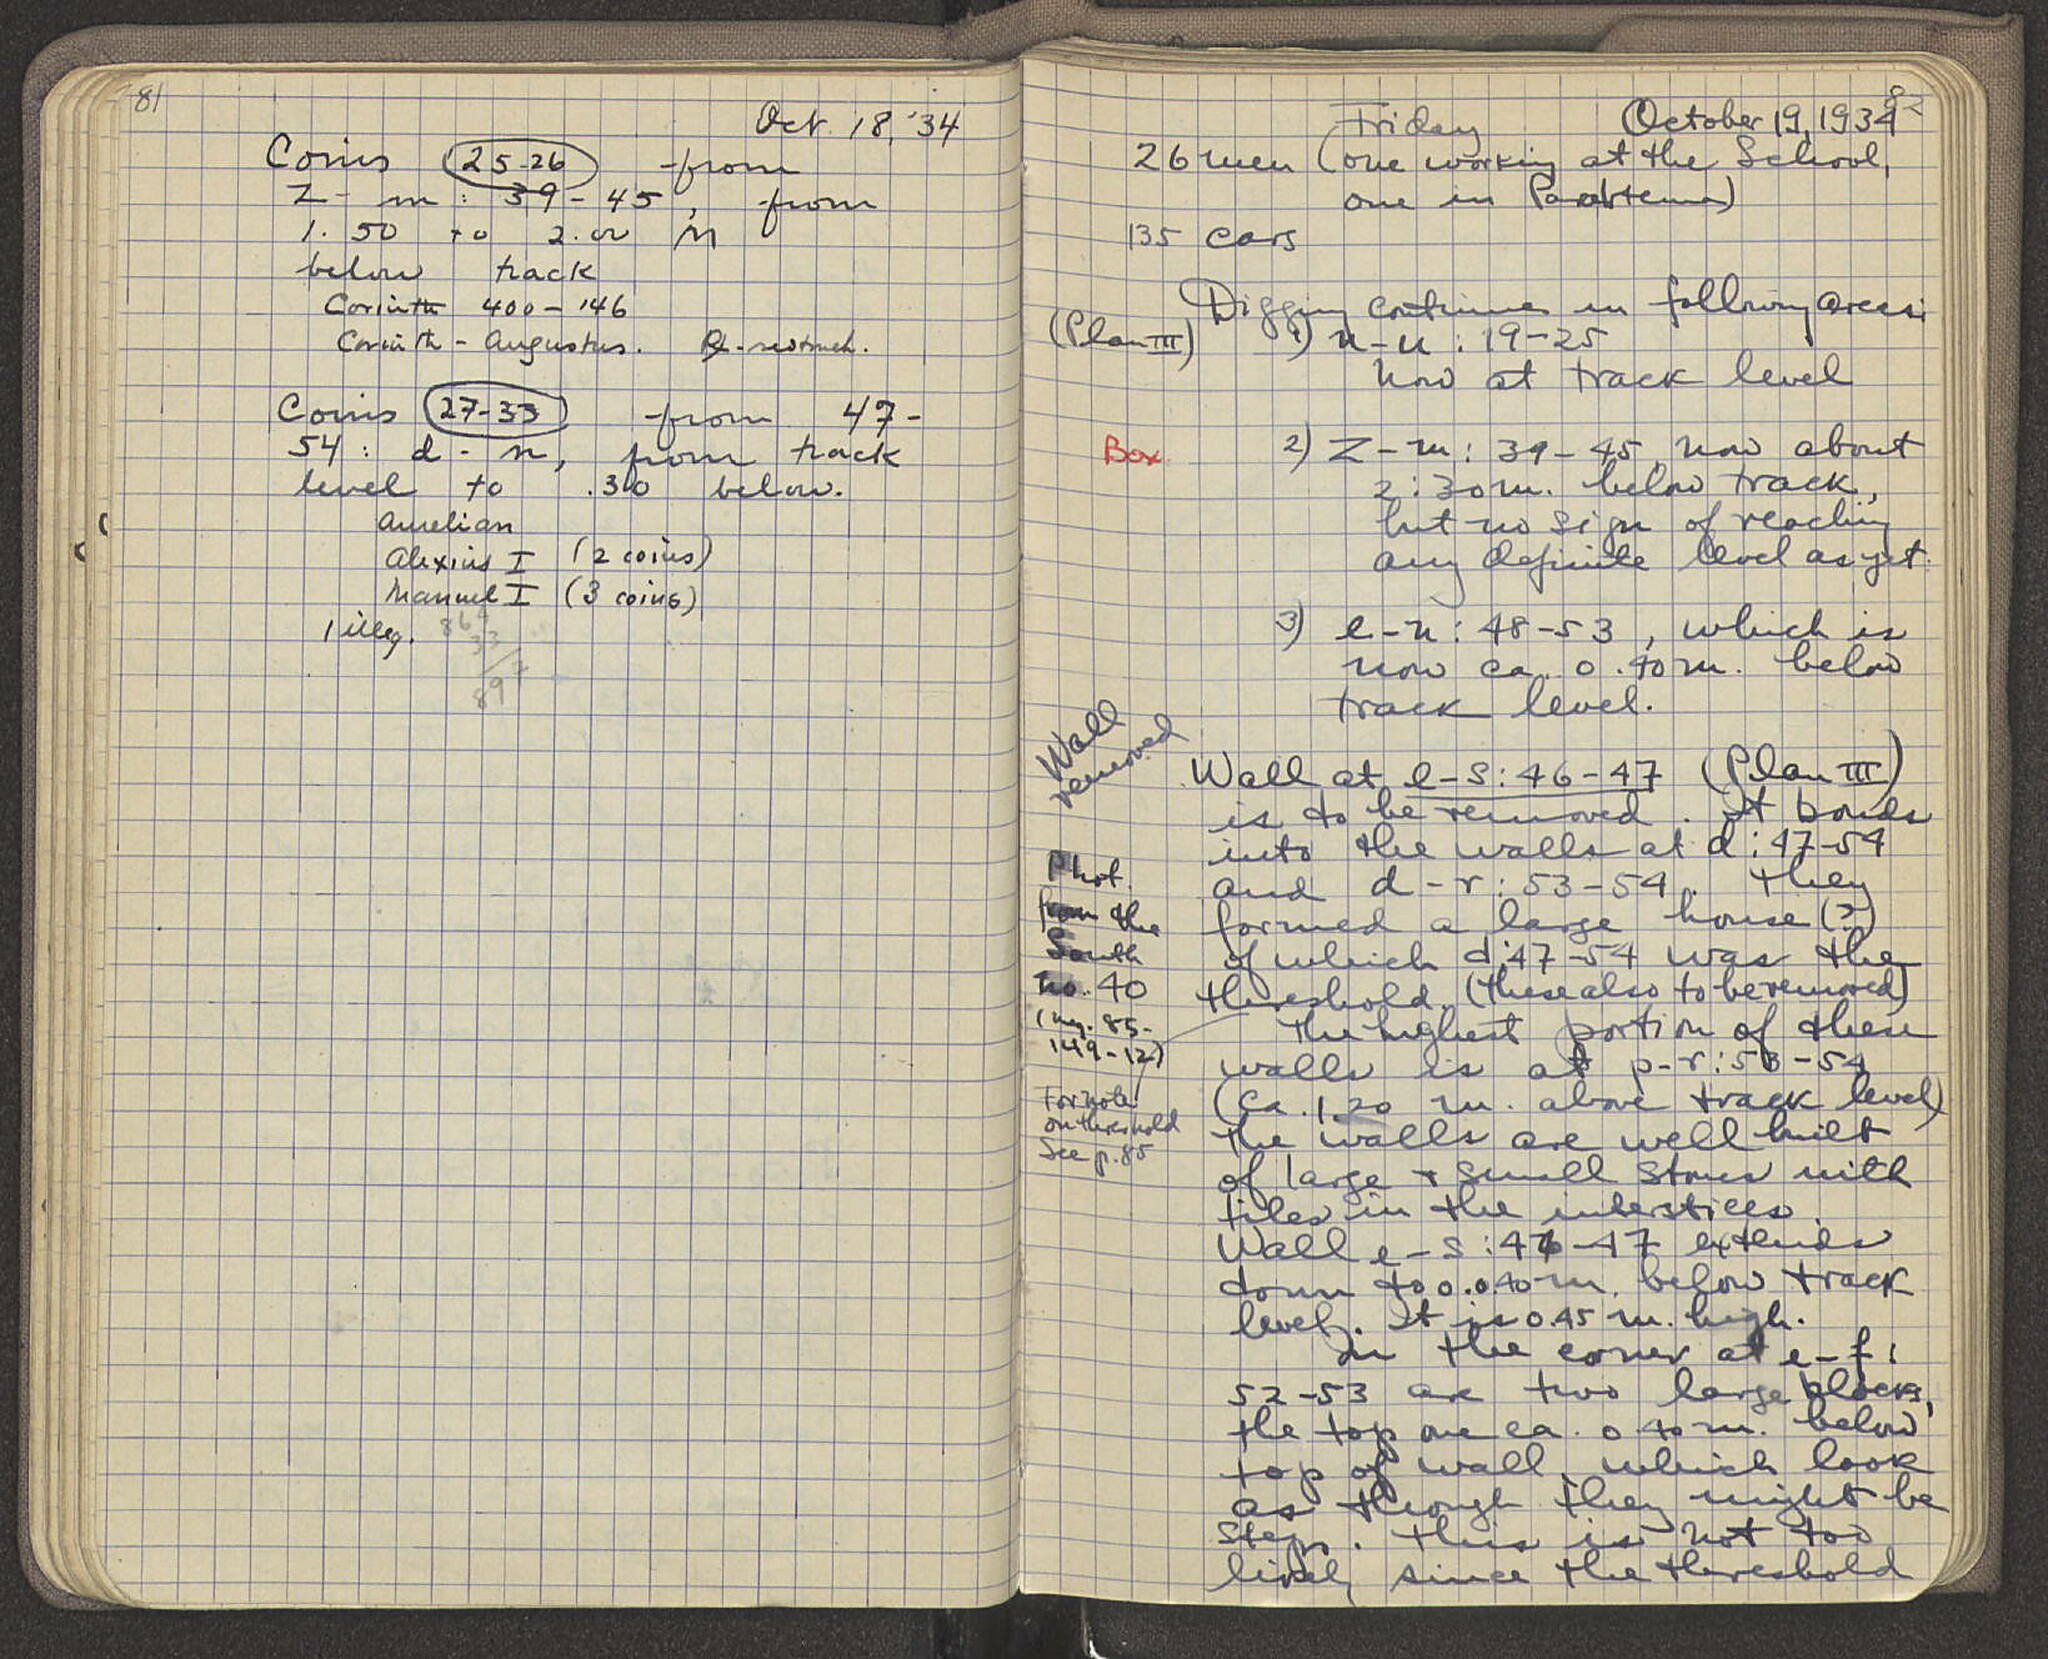 81
Oct. 18, '34
Coins 25-26 from
Z- m: 39-45, from
1.50 to 2.00 m
below track
Corinth 400-146
Corinth - Augustus.
Coins 27-33 from 47-
54: d-n, from track
level to .30 below.
Aurelian
Alexius I (2 coins)
Manuel I (3 coins)
1 illeg.
864
33
897
82
Friday October 19, 1934
26 men (one working at the School,
one in
135 cars
Digging continues in following areas:
(Plan III) 1) n-u: 19-25
now at track level
Box 2) Z-m: 39-45, now about
2.30 m. below track,
but no sign of reaching
any definite level as yet.
3) e-n: 48-53, which is
now ca. 0.40 m. below
track level.
Wall
removed
Wall at e-s: 46-47 (Plan III)
is to be removed. It bonds
into the walls at d: 47-54
and d-r: 53-54. They
formed a large house (?)
of which d: 47-54 was the
threshold. (these also to be removed)
Phot.
from the
South
no. 40
(neg. 85-
149-12)
For note
on threshold
see p. 85
The highest portion of these
walls is at p-r: 53-54
(ca. 1.20 m. above track level)
The walls are well built
of large + small stones with
tiles in the interstices.
Wall e-s: 46-47 extends
down to 0.040 m. below track
level. It is 0.45 m. high.
In the corner at e-f:
52-53 are two large blocks,
the top one ca. 0.40 m. below
top of wall, which look
as though they might be
steps. This is not too
likely since the threshold